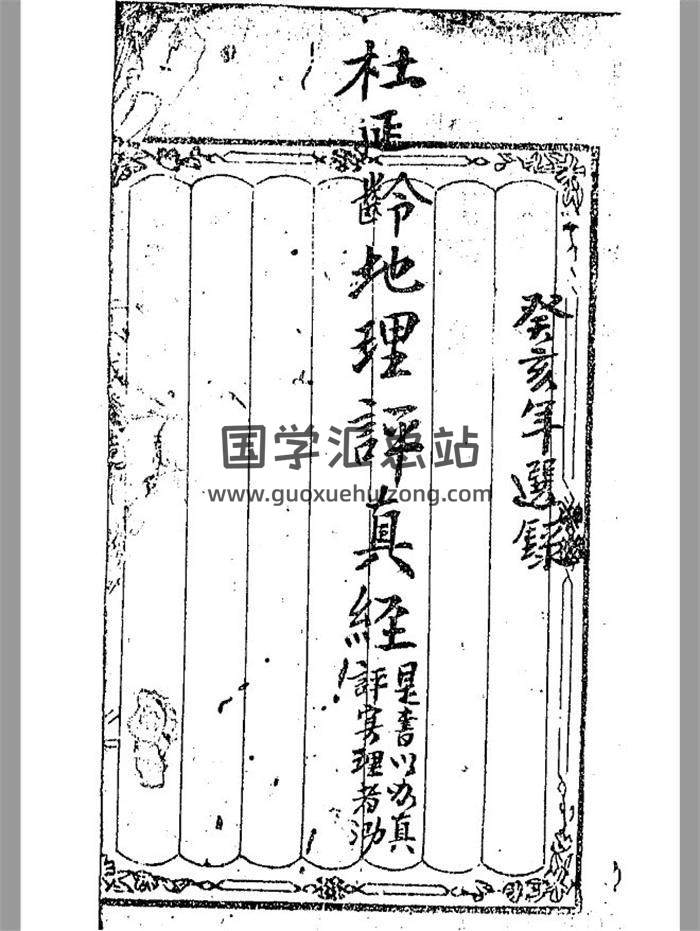 癸亥年選錄
杜延齡地理評真經
是書以为真
評实理者为
国学汇总站
www.guoxuehuizong.com